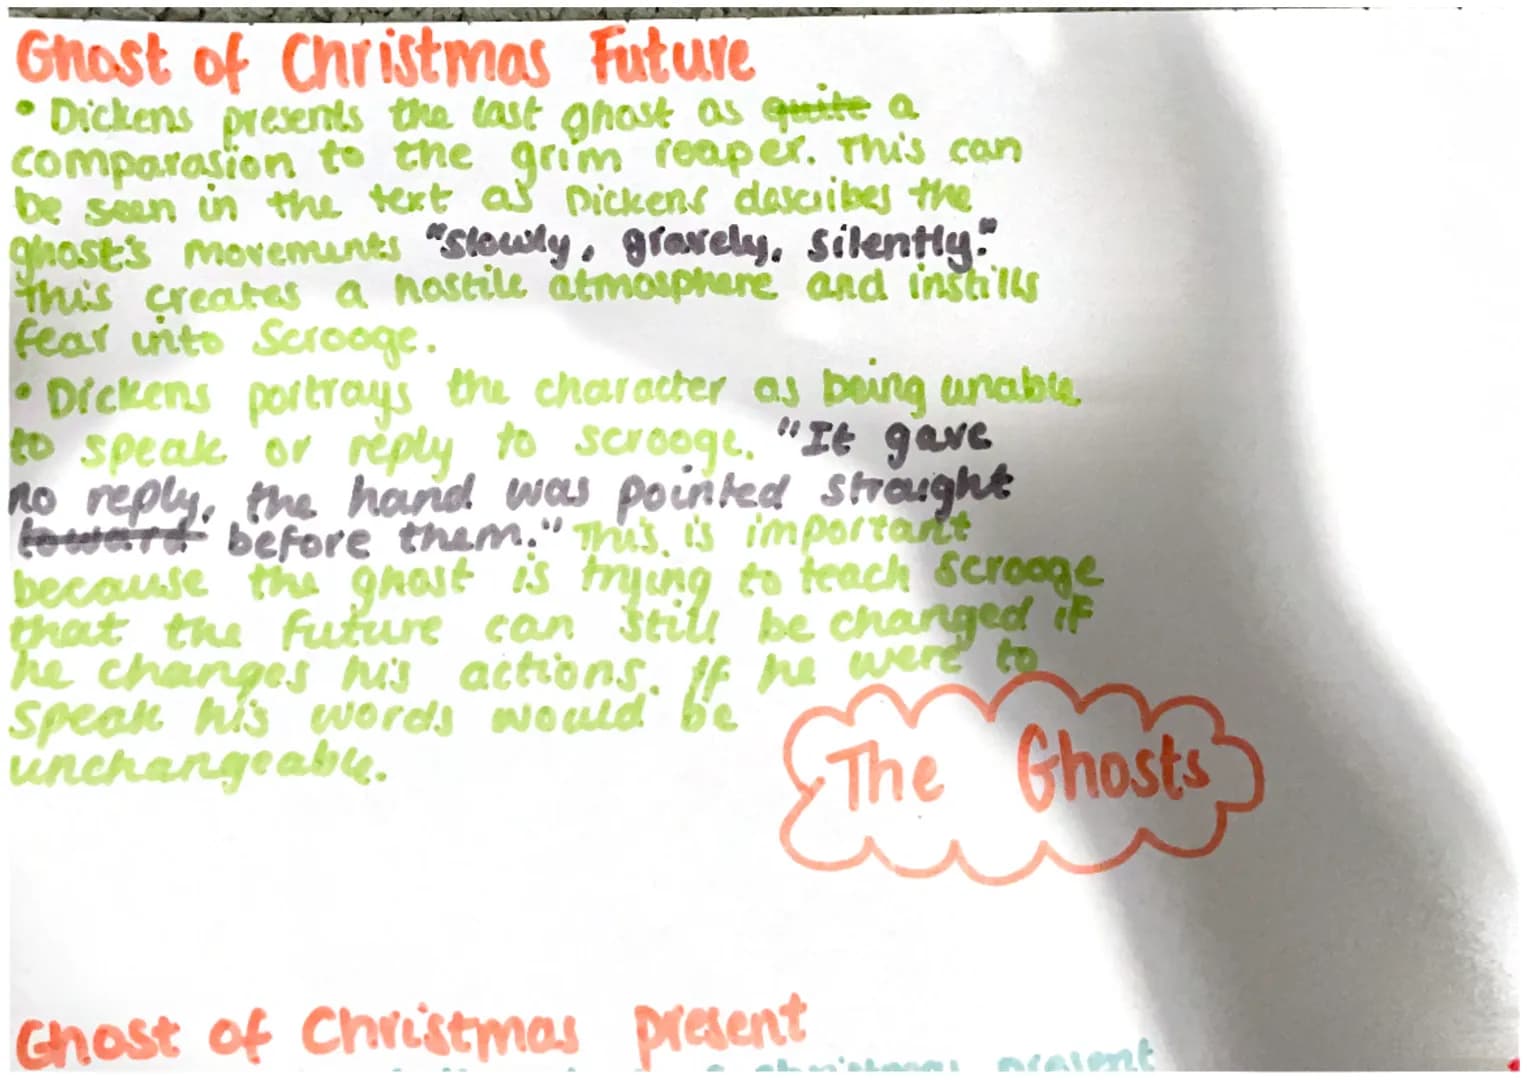 Ghost of Christmas Future
• Dickens presents the last ghost as quite a
comparasion to the grim reaper. This can
be seen in the text as Dickens describes the
ghost's movements "slowly, gravely, silently."
This creates a hostile atmosphere and instills
fear into Scrooge.
• Dickens portrays the character as being unable
to speak or reply to scrooge. "It gave
no reply, the hand was pointed straight
toward before them." This is important
because the ghost is trying to teach Scrooge
that the future can still be changed if
he changes his actions. If he were to
speak his words would be
unchangeable.
The Ghosts
Ghost of Christmas present
christmas present